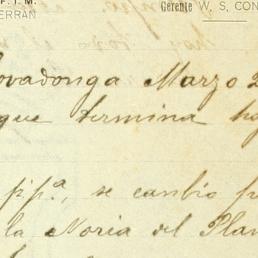 F. I. M.
ERRÁN
Gerente W. S. CON
ovadonga Marzo 2
que termina
p.pª., se cambió
la Noria del Plan